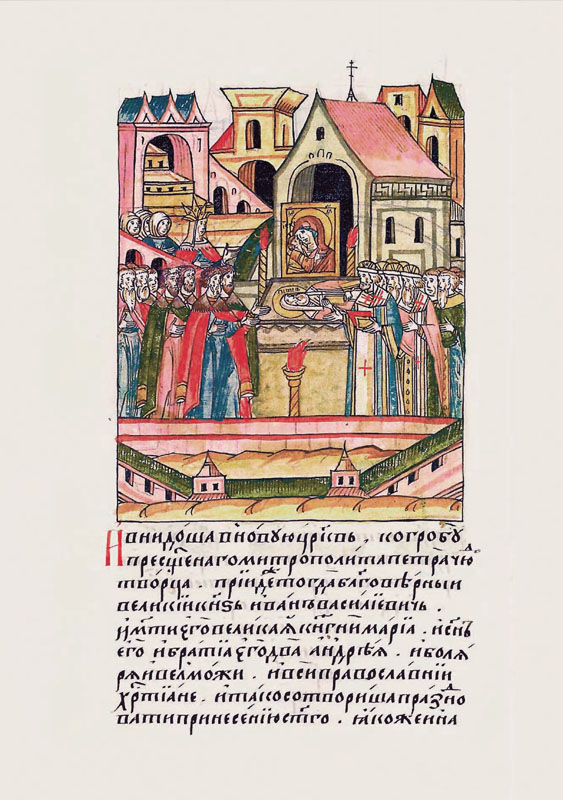 И внидоша в новую ц҃рк҃вь . ко гробу
прес҃щенаго митрополита петра чюⷣ
творца . прїиде тогда бл҃говѣрныи
великїи кн҃ѕь иванъ василїевичь .
и мт҃и его великаѧ кн҃гини марїа . и сн҃ъ
его и братїа его два андрѣѧ . и болѧ
рѧ и велможи . и вси православнїи
хрт҃їане . и тако сотвориша празⷣно
вати принесенїю ст҃го . ꙗко же и на